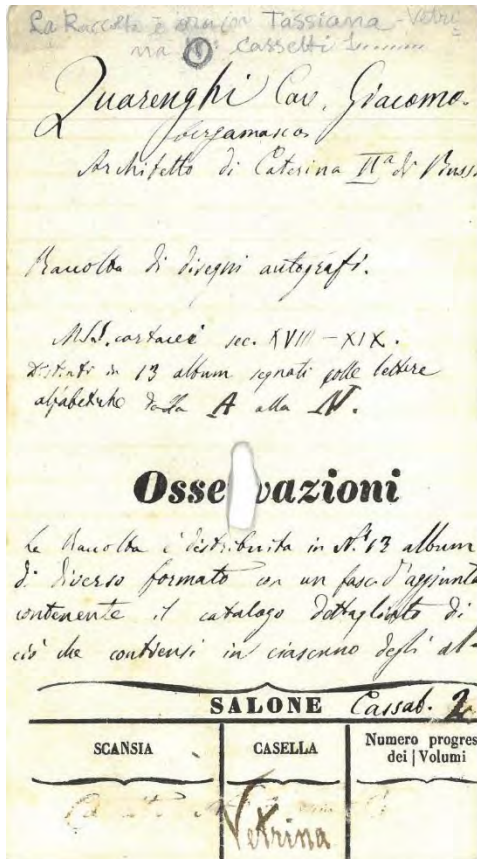 La Raccolta è ora in Tassiana - Vetri=
na 1ª cassetti 1.........
Quarenghi Cav. Giacomo.
bergamasco
Architetto di Caterina IIª di Russ
Raccolta di disegni autografi.
MSS. cartacei sec. XVIII - XIX.
Distinti in 13 album segnati colle lettere
alfabetiche dalla A alla N.
Osservazioni
La Raccolta è distribuita in N.º 13 album
di diverso formato con un fasc. d'aggiunta
contenente il catalogo dettagliato di
ciò che contiensi in ciascuno degli al-
SALONE Cassab. 2
SCANSIA CASELLA Numero progres
dei Volumi
Vetrina